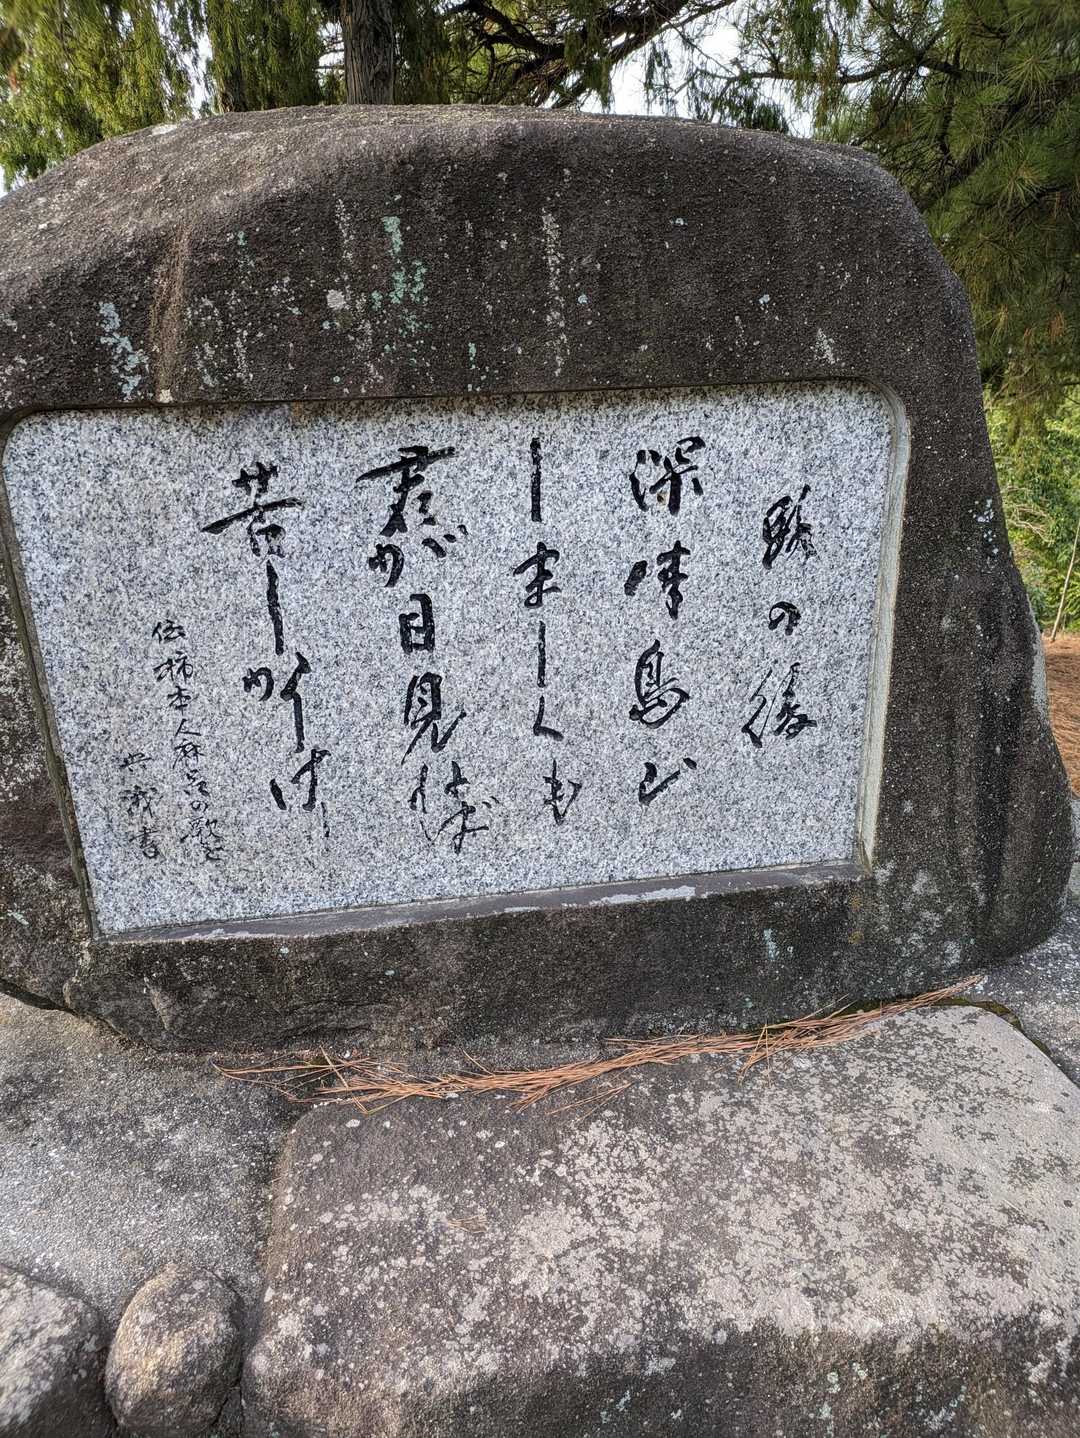 路の後
深津島山
しましくも
君が目見ねば
苦しかりけり
伝柿本人麻呂の歌を
書